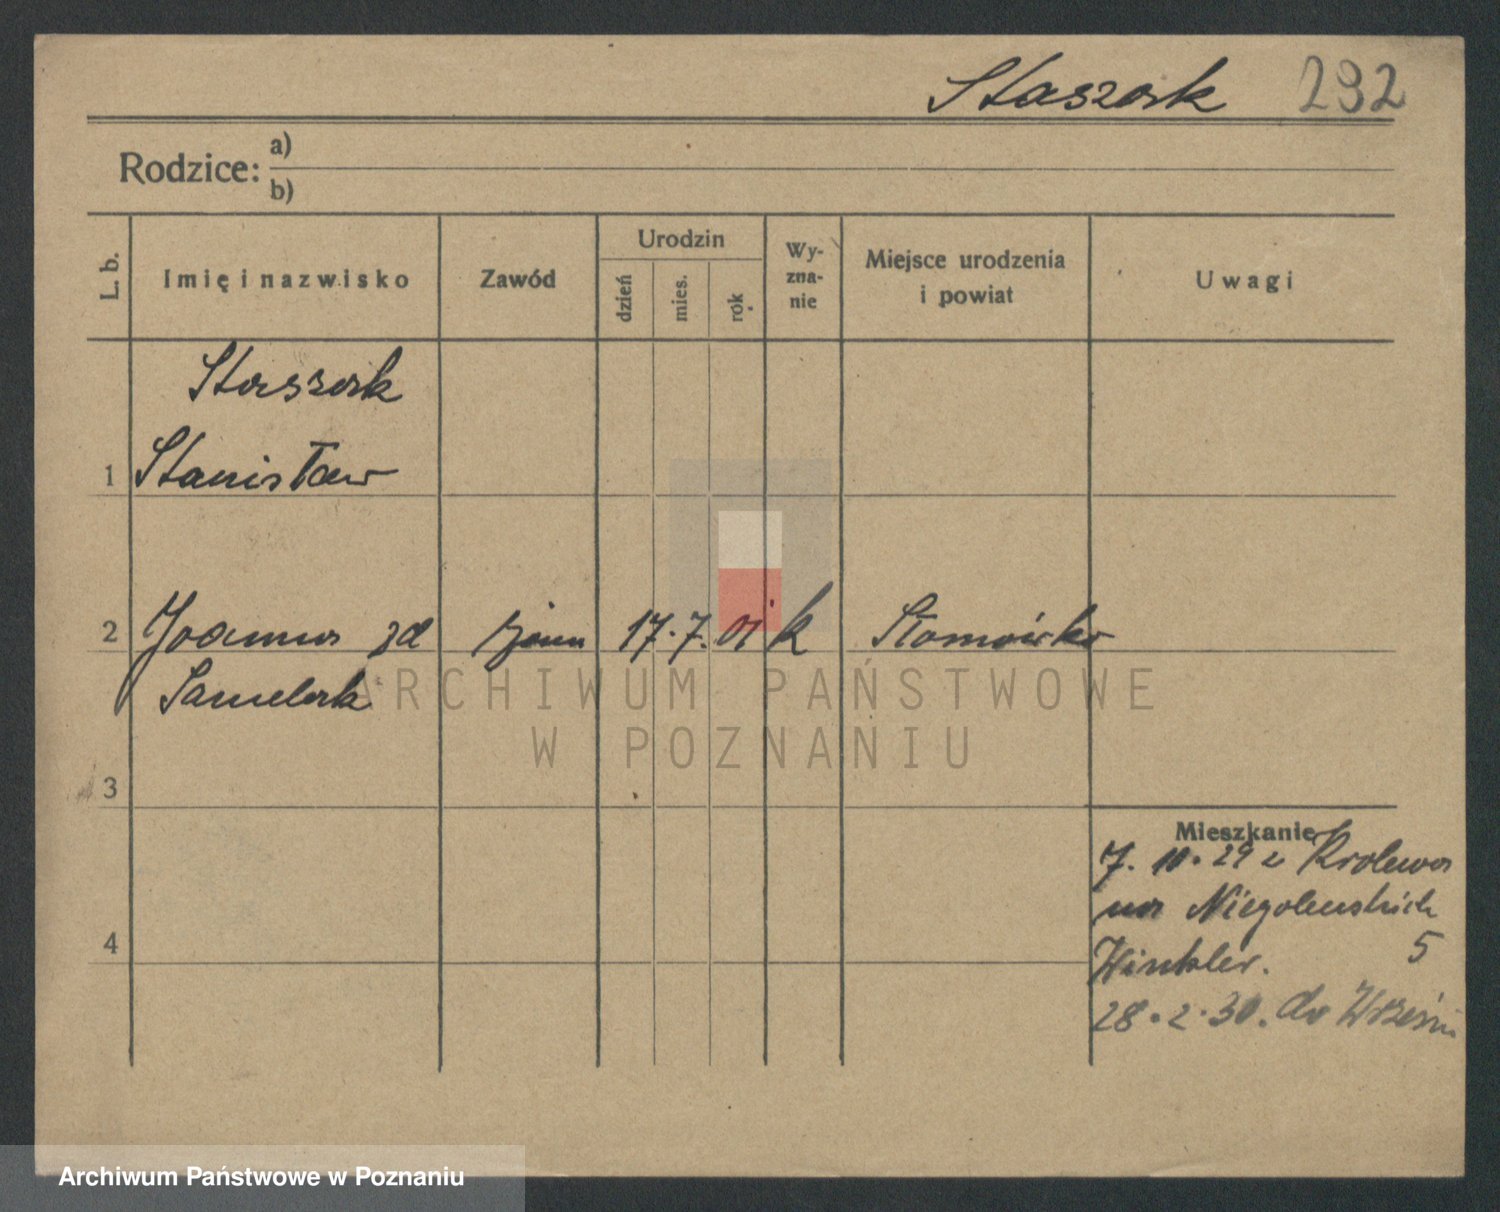 Staszak 292
Rodzice: a)
b)
L. b. Imię i nazwisko Zawód Urodzin dzień mies. rok Wy-zna-nie Miejsce urodzenia i powiat Uwagi
Staszak
1 Stanisław
2 Joanna zd 17. 7. 01 k
Samelak
ARCHIWUM PAŃSTWOWE
W POZNANIU
3
Mieszkanie
7. 10. 29 z
na Niegolewskich
4 5
Winkler.
28. 2. 30. do
Archiwum Państwowe w Poznaniu